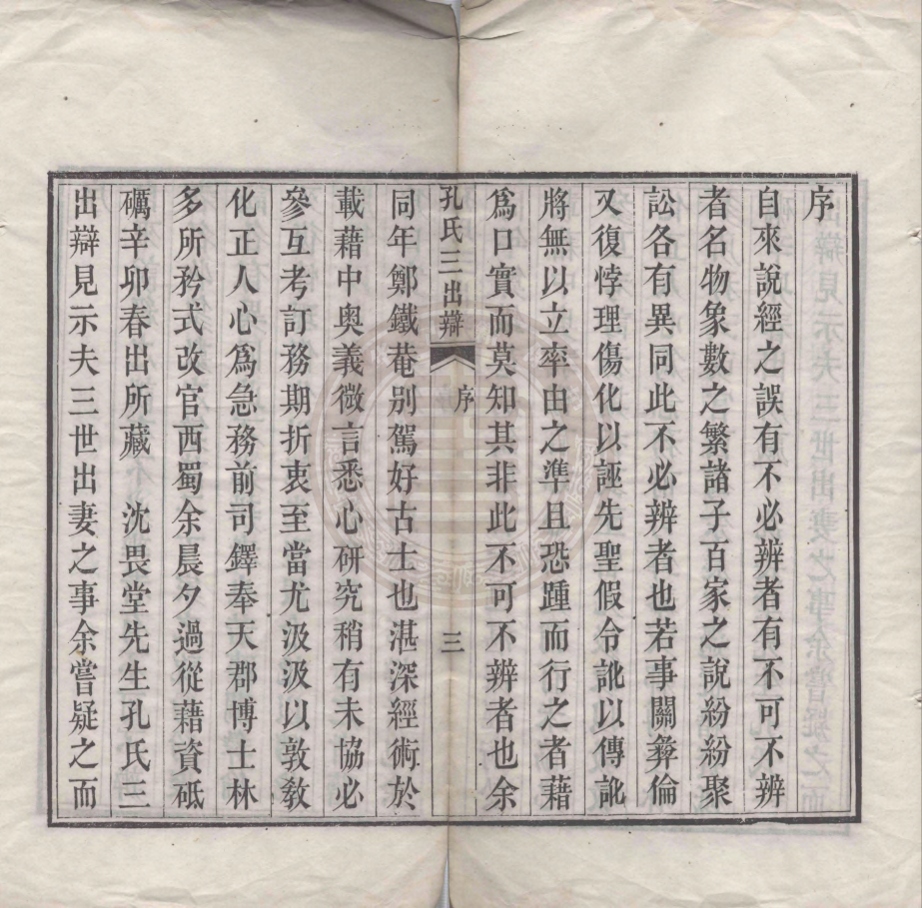 序
自來說經之誤有不必辨者有不可不辨
者名物象數之繁諸子百家之說紛紛聚
訟各有異同此不必辨者也若事關彝倫
又復悖理傷化以誣先聖假令訛以傳訛
將無以立率由之準且恐踵而行之者藉
爲口實而莫知其非此不可不辨者也余
孔氏三出辯 序 三
同年鄭鐵菴別駕好古士也湛深經術於
載藉中奧義微言悉心研究稍有未協必
參互考訂務期折衷至當尤汲汲以敦敎
化正人心爲急務前司鐸奉天郡博士林
多所矜式改官西蜀余晨夕過從藉資砥
礪辛卯春出所藏 沈畏堂先生孔氏三
出辯見示夫三世出妻之事余嘗疑之而